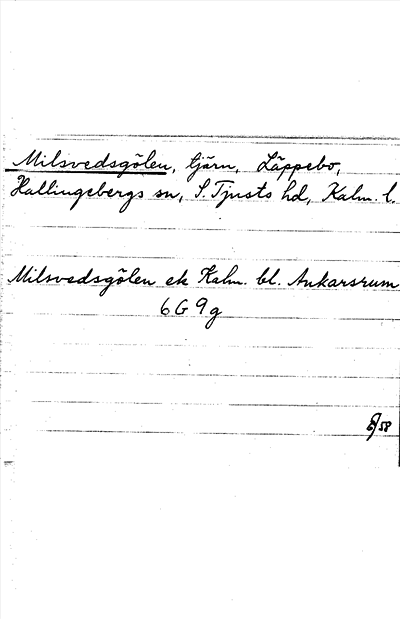 Milsvedsgölen, tjärn, Läppebo,
Hallingebergs sn, S. Tjusts hd, Kalm. l.
Milsvedsgölen ek Kalm. bl. Ankarsrum
6 G 9 g
58